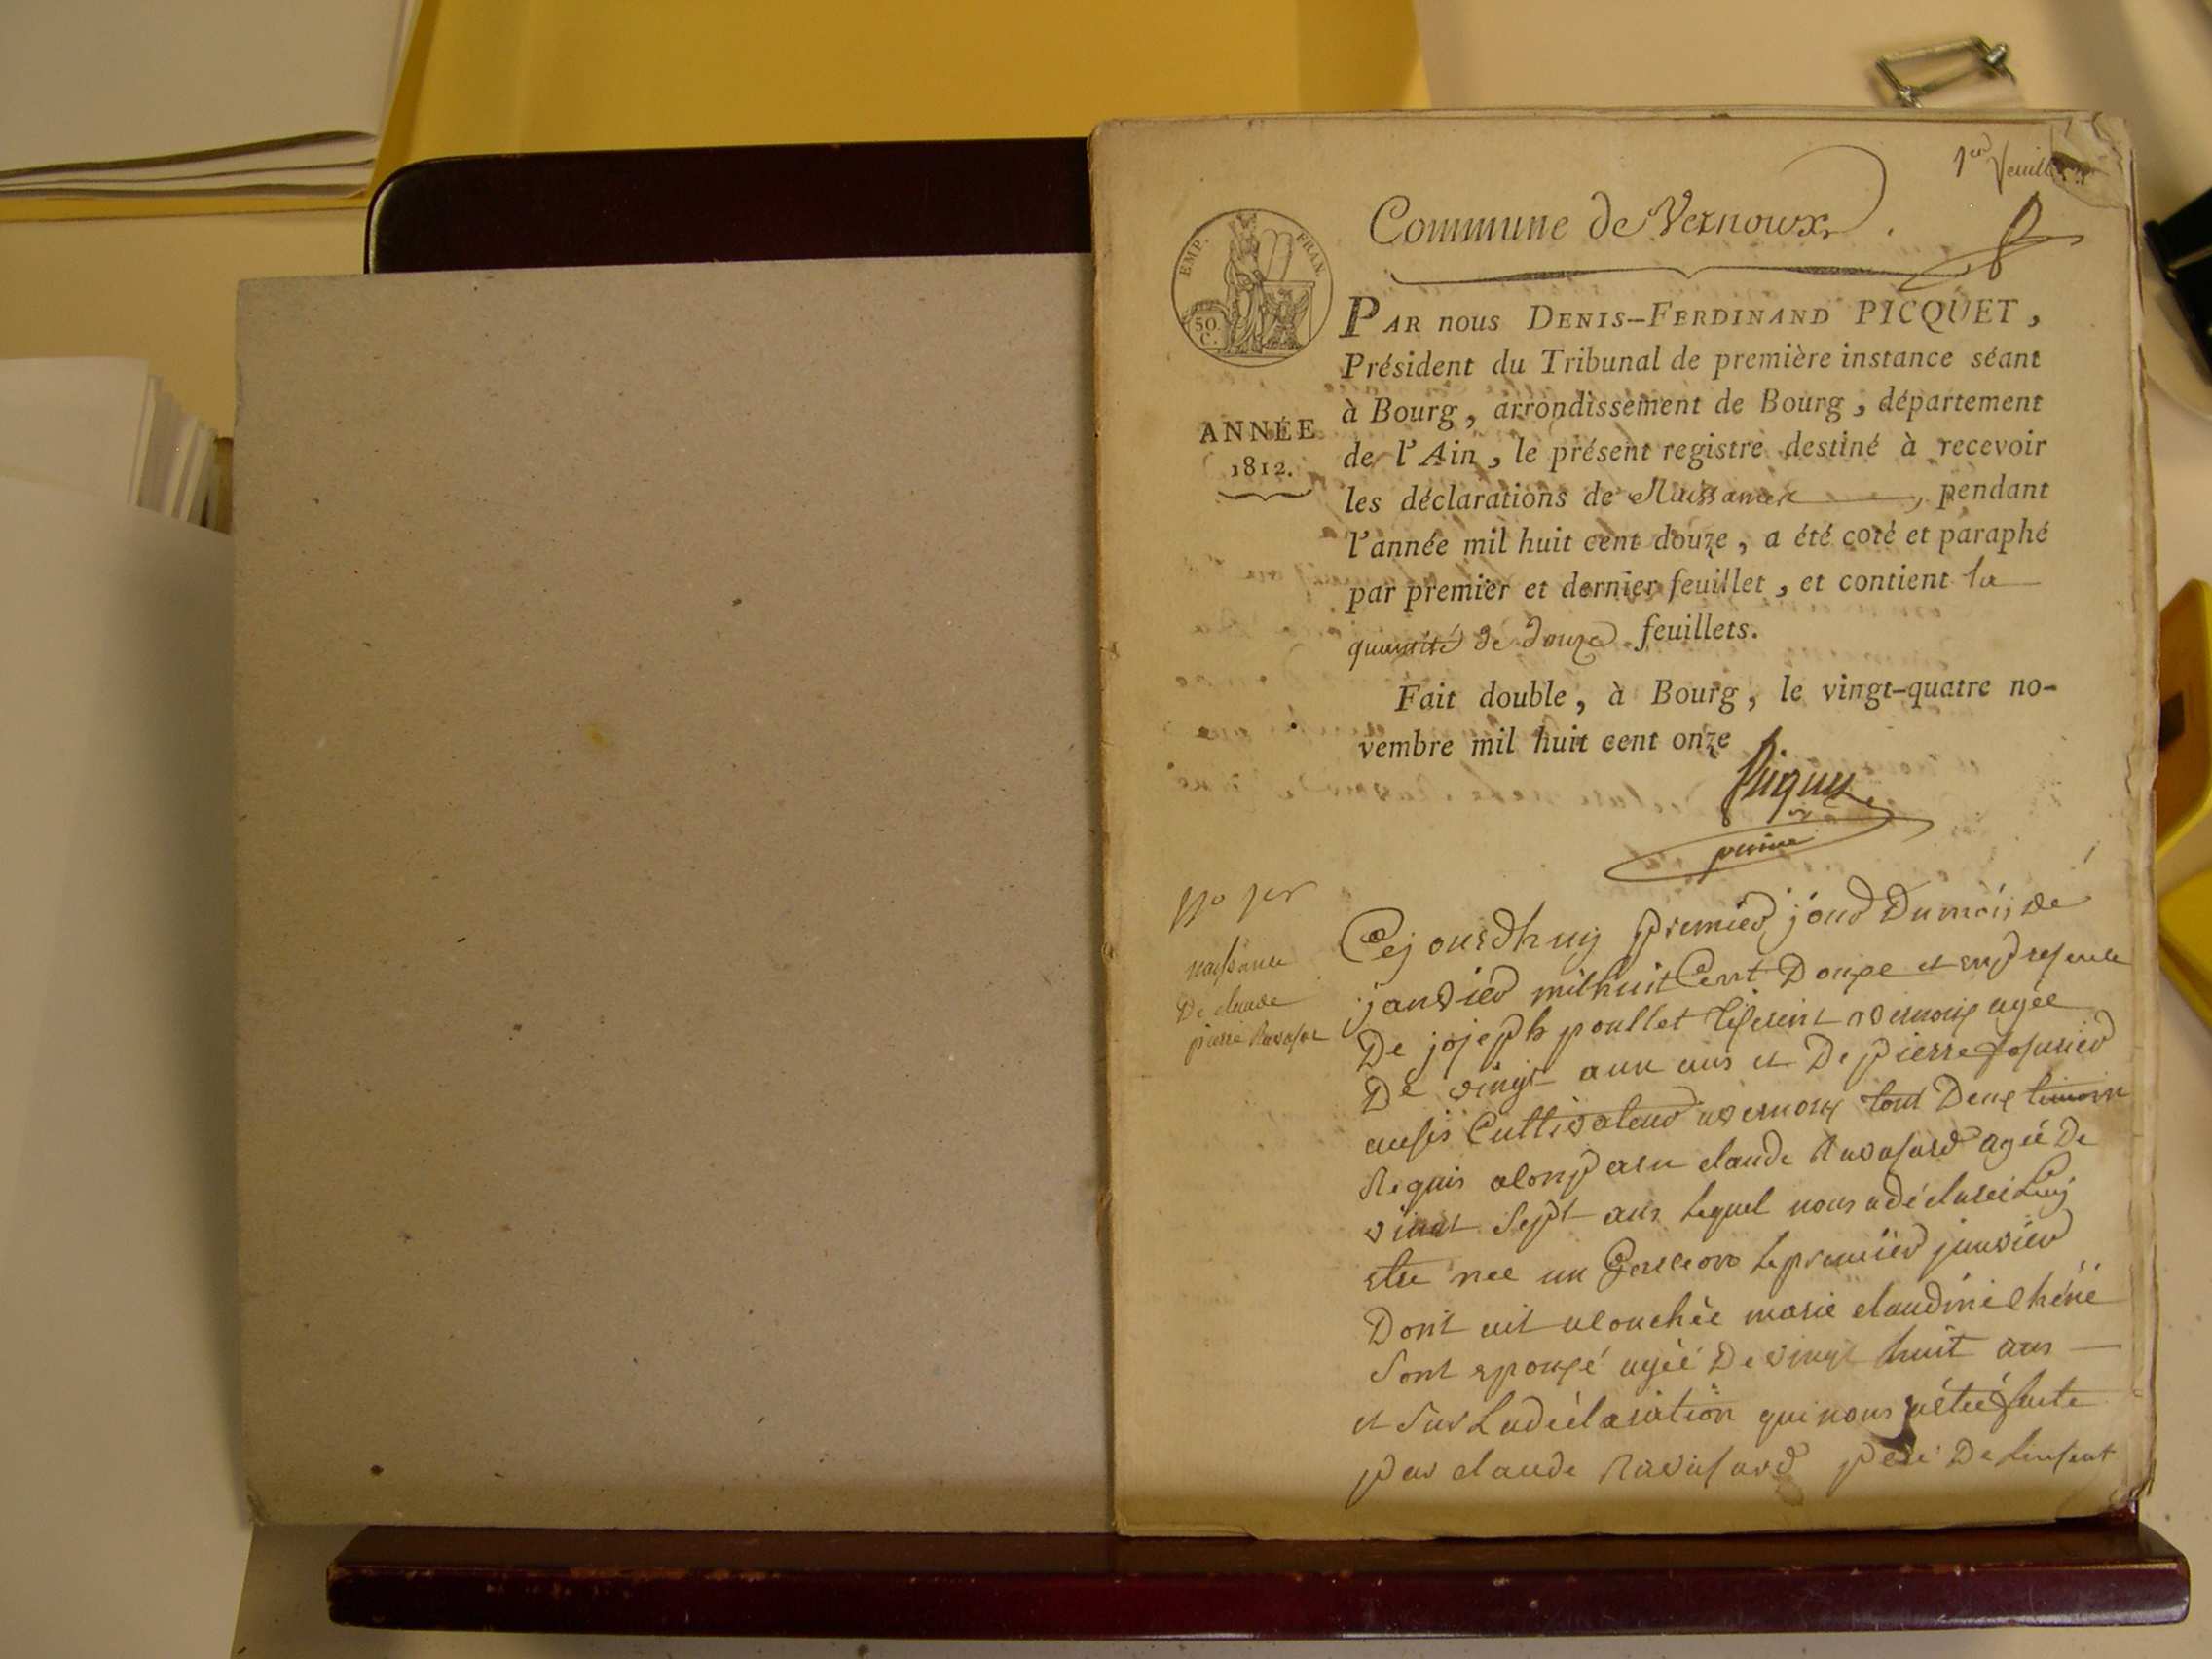 1er feuillet
Commune de Vernoux
EMP. FRAN.
50.
C.
ANNÉE
1812.
PAR nous DENIS-FERDINAND PICQUET,
Président du Tribunal de première instance séant
à Bourg, arrondissement de Bourg, département
de l'Ain, le présent registre destiné à recevoir
les déclarations de Naissances, pendant
l'année mil huit cent douze, a été coté et paraphé
par premier et dernier feuillet, et contient la
quantité de douze feuillets.
Fait double, à Bourg, le vingt-quatre no-
vembre mil huit cent onze
Picquet
No 1er
naissance
De claude
pierre Ravassar
Cejourdhuy premier jour Du mois de
janvier mil huit Cent Douze et en presence
De joseph poullet a vernoux agée
De vingt aun ans et De pierre
aussis Cultivateur a vernoux tout Deux temoin
Requis a comparu claude Ravasard agée De
vingt Sept ans Lequel nous a déclaréé Luy
etre nee un Garceon Le premier janvier
Dont ait acouchée marie claudine chêne
Sont epouxé agéé De vingt huit ans
et Sur La déclaration qui nous a étéé faite
par claude Ravasard père De Lenfent